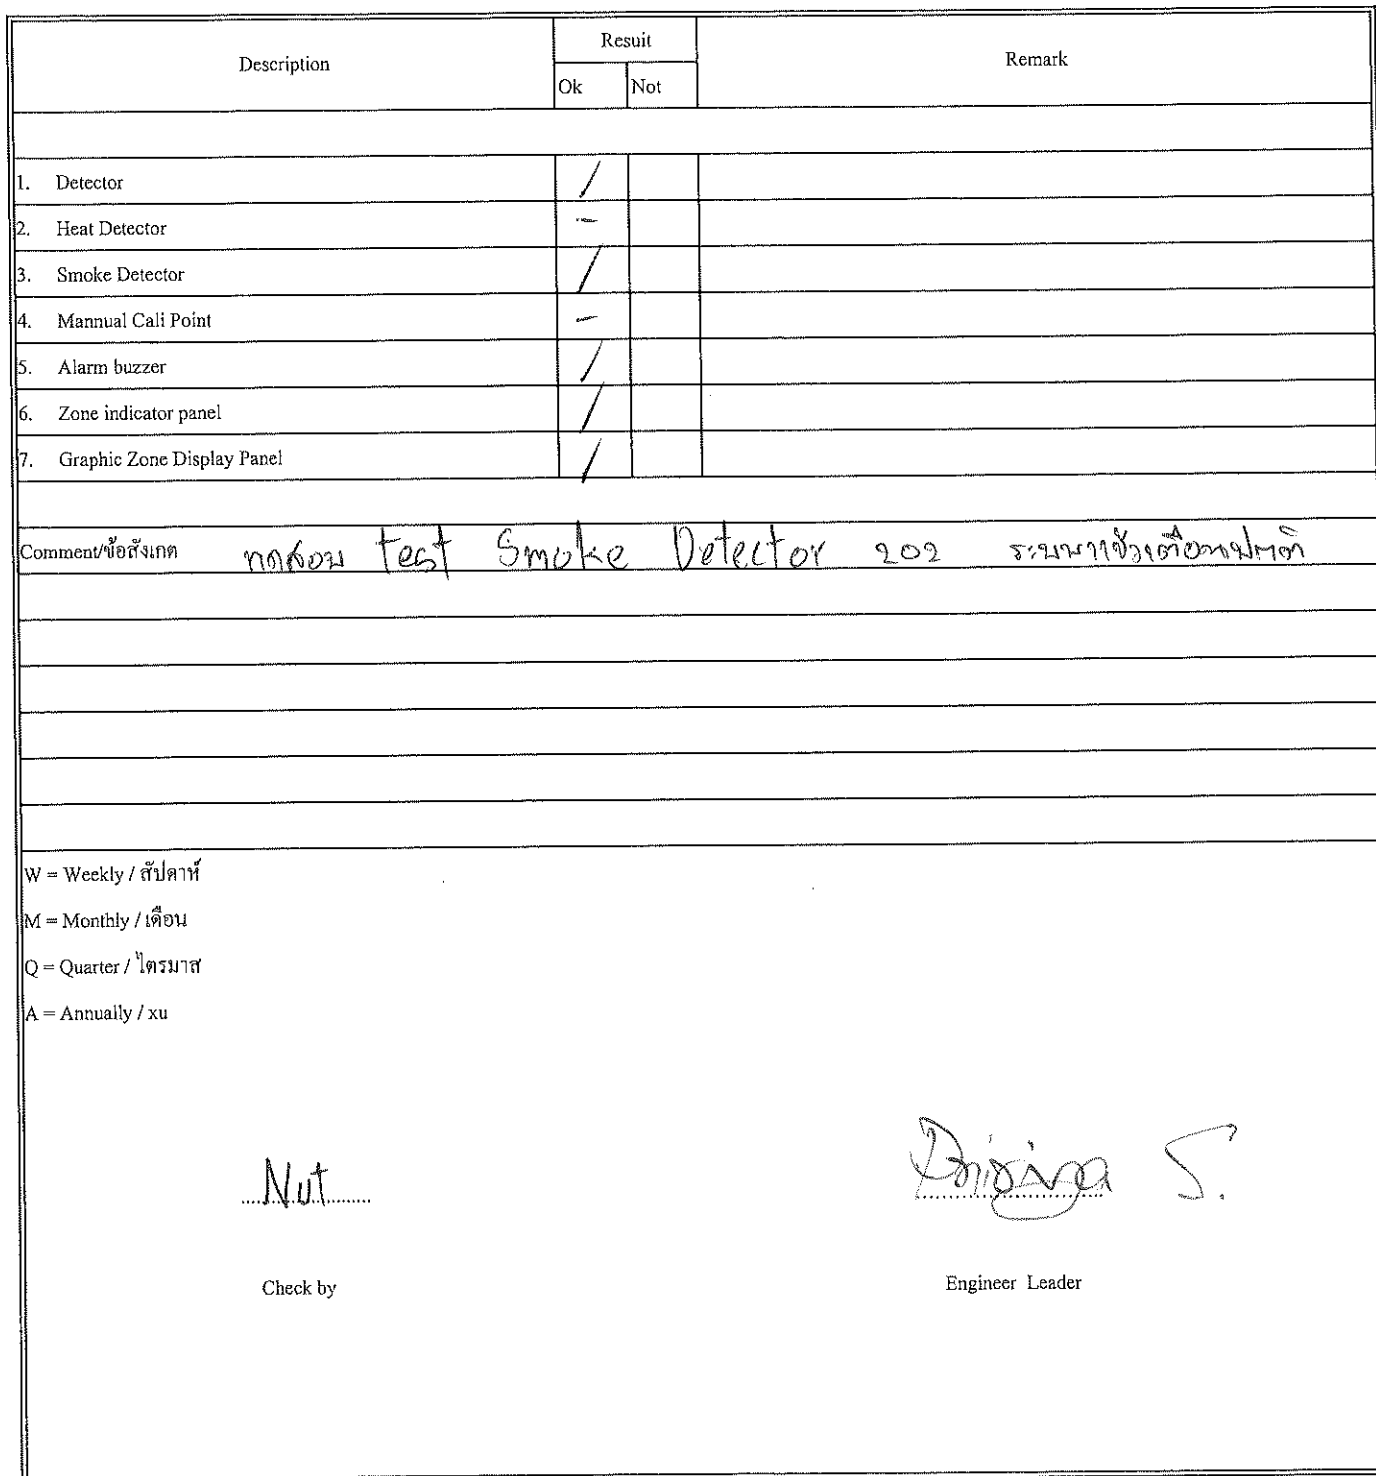 Description Resuit Remark
Ok Not
1. Detector /
2. Heat Detector -
3. Smoke Detector /
4. Mannual Cali Point -
5. Alarm buzzer /
6. Zone indicator panel /
7. Graphic Zone Display Panel /
Comment/ข้อสังเกต ทดสอบ test Smoke Detector 202 ระบบแจ้งเตือนปกติ
W = Weekly / สัปดาห์
M = Monthly / เดือน
Q = Quarter / ไตรมาส
A = Annually / xu
Nut S.
Check by Engineer Leader